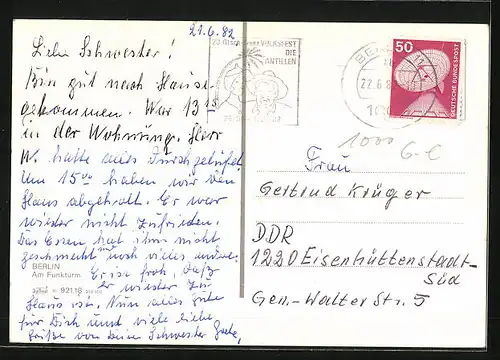 21.6.82
Liebe Schwester!
Bin gut nach Hause
gekommen. War 13 15
in der Wohnung. Herr
W. hatte alles durchgelüftet.
Um 15 00 haben wir den
Haus abgeholt. Er war
wieder nicht zufrieden.
Das Essen hat ihm nicht
geschmeckt und noch vieles andere.
BERLIN
Am Funkturm
Er ist froh, daß
er wieder zu
Hause ist. Nun alles Gute
für Dich und viele liebe
Grüße von Deiner Schwester
92118
VOLKSFEST
DIE
ANTILLEN
BERLIN
22.6.8
50
DEUTSCHE BUNDESPOST
1000
G-C
Frau
Gertrud Krüger
DDR
1220 Eisenhüttenstadt-
Süd
Gen.-Walter Str. 5